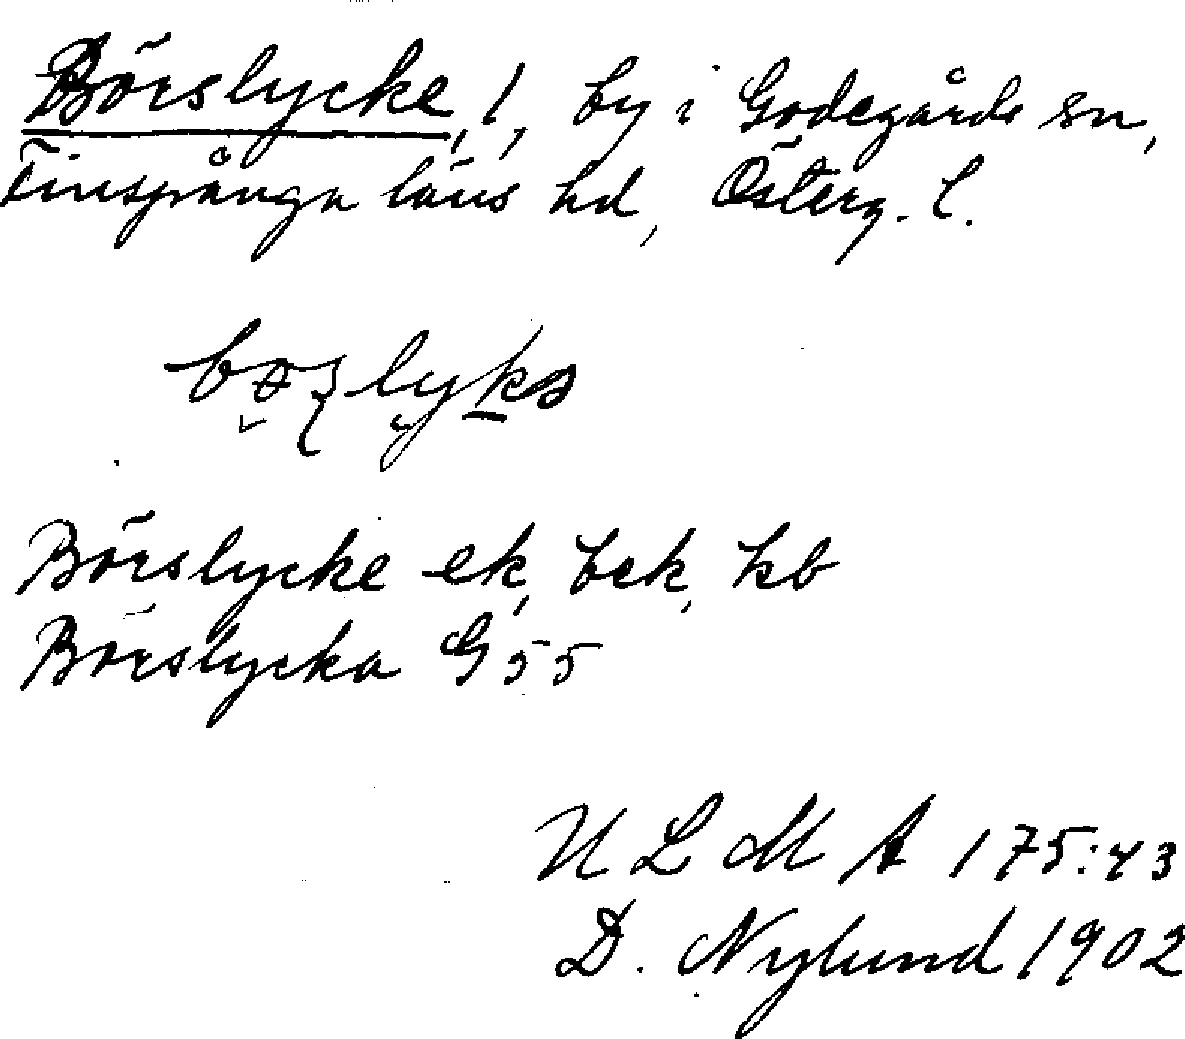 Börslycke, !, by i Godegårds sn,
Finspånga läns hd, Österg. l.
Börslycke ek, bek, kb
Börslycka G 55
ULMA 175:43
D. Nylund 1902